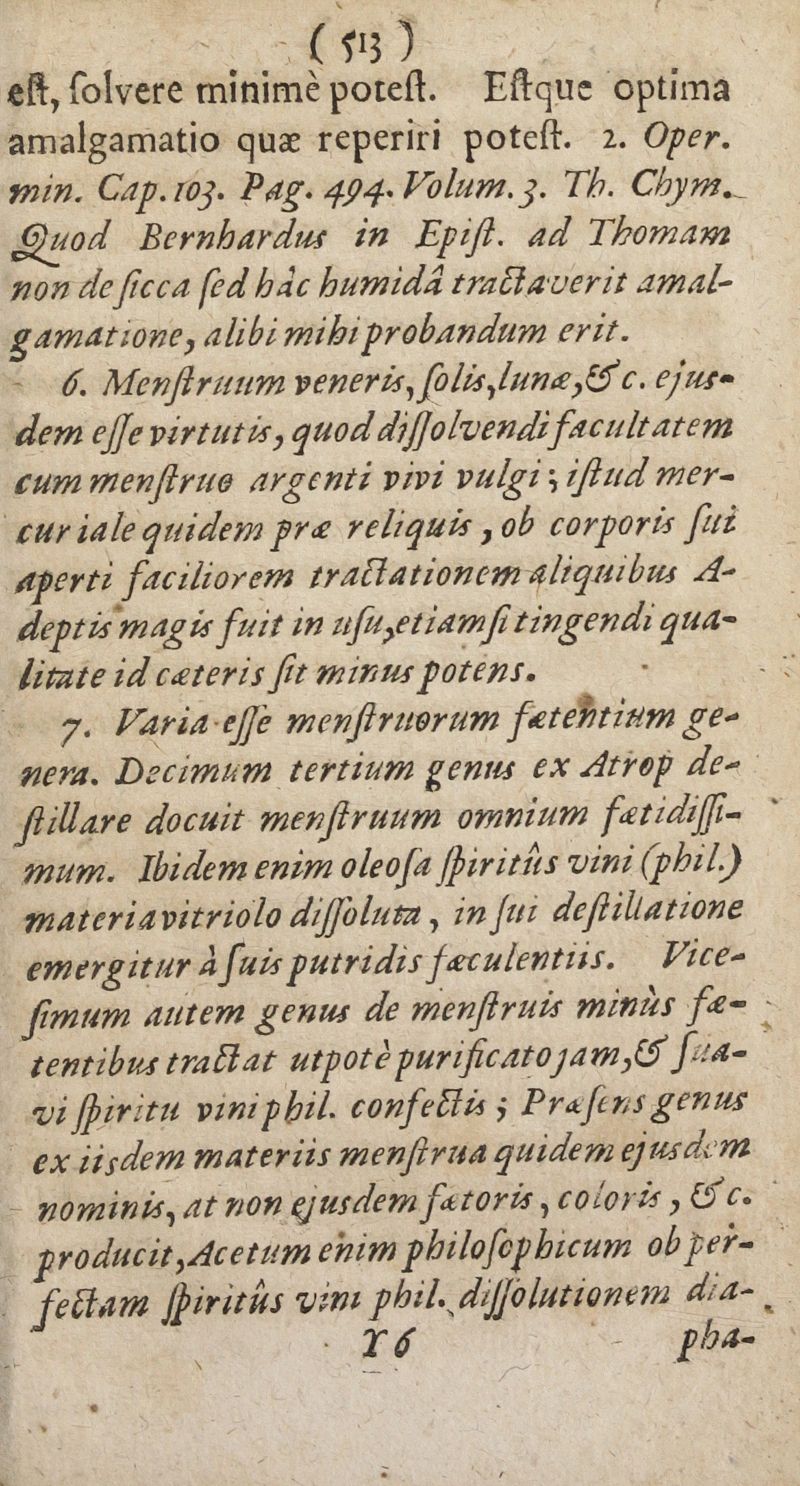 ( 513 )
est, solvere minimè potest. Estque optima
amalgamatio quæ reperiri potest. 2. Oper.
min. Cap. 103. Pag. 494. Volum. 3. Th. Chym.
Quod Bernhardus in Epist. ad Thomam
non de sicca sed hâc humidâ tractaverit amal-
gamatione, alibi mihi probandum erit.
6. Menstruum veneris, solis, lunæ, &c. ejus-
dem esse virtutis, quod dissolvendi facultatem
cum menstruo argenti vivi vulgi; istud mer-
curiale quidem præ reliquis, ob corporis sui
aperti faciliorem tractationem aliquibus A-
deptis magis fuit in usu, etiamsi tingendi qua-
litate id cæteris sit minus potens.
7. Varia esse menstruorum fætentium ge-
nera. Decimum tertium genus ex Atrop de-
stillare docuit menstruum omnium fætidissi-
mum. Ibidem enim oleosa spiritûs vini (phil.)
materia vitriolo dissoluta, in sui destillatione
emergitur à suis putridis fæculentiis. Vice-
simum autem genus de menstruis minùs fæ-
tentibus tractat utpotè purificato jam, & sua-
vi spiritu vini phil. confectis; Præsens genus
ex iisdem materiis menstrua quidem ejusdem
nominis, at non ejusdem fætoris, coloris, &c.
producit, Acetum enim philosophicum ob per-
fectam spiritûs vini phil. dissolutionem dia-
Y 6 pha-